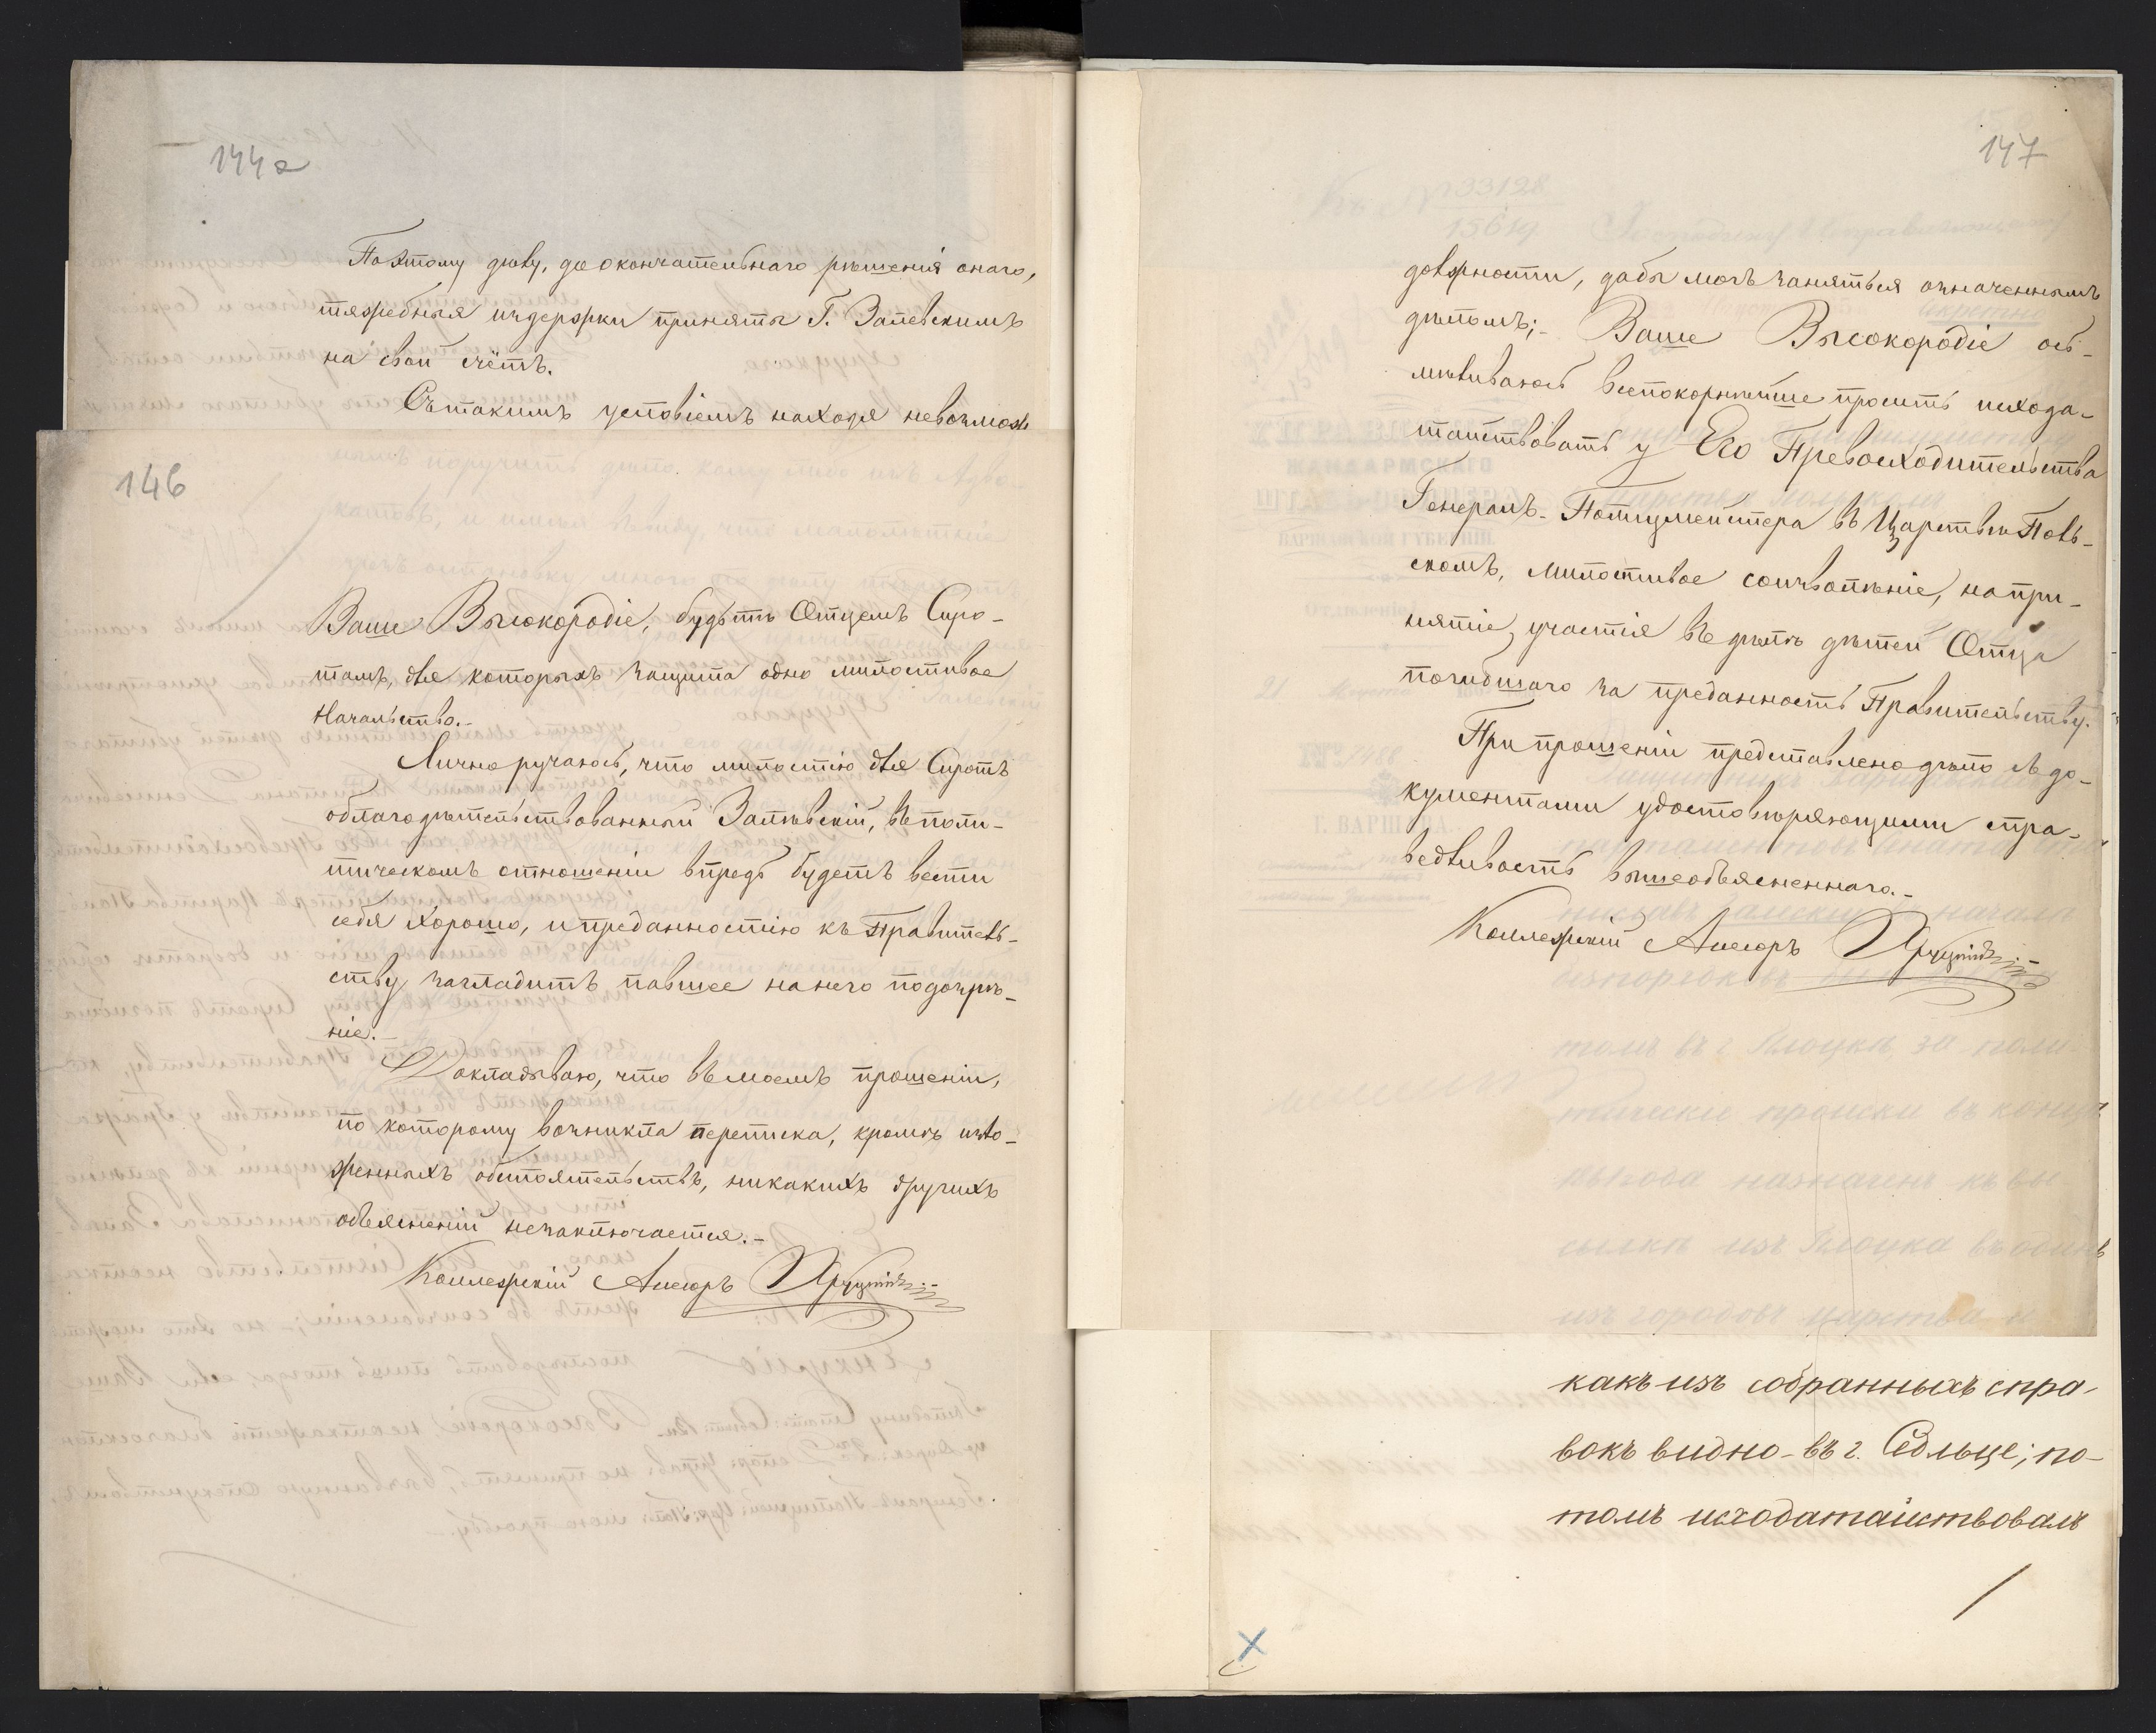 144a
Поэтому дѣлу, до окончательнаго рѣшенія онаго,
тяжебныя издержки приняты Г. Залевскимъ
на свой счётъ.
Съ такимъ условіемъ находя невозмож
146
Ваше Высокородіе, будьте Отцемъ Сиро-
тамъ, для которыхъ защита одно милостивое
Начальство.-
Лично ручаюсь, что милостію для Сиротъ
облагодѣтельствованный Залѣвскій, въ поли-
тическомъ отношеніи впредь будетъ вести
себя хорошо, и преданностію къ Правитель-
ству, загладитъ павшее на него подозрѣ-
ніе.-
Докладываю, что въ моемъ прошеніи,
по которому возникла переписка, кромѣ изло-
женныхъ обстоятельствъ, никакихъ другихъ
объясненій незаключается.-
Коллежскій Асесоръ
147
довѣрности, дабы могъ заняться означеннымъ
дѣломъ;- Ваше Высокородіе ос-
мѣливаюсь всепокорнѣйше просить исхода-
тайствовать у Его Превосходительства
Генералъ-Полицмейстера въ Царствѣ Поль-
скомъ, милостивое соизволѣніе, на при-
нятіе участія въ дѣлѣ дѣтей Отца
погибшаго за преданность Правительству.
При прошеніи представлено дѣло съ до-
кументами удостовѣряющими спра-
ведливость вышеобъясненнаго.-
Коллежскій Асесоръ
какъ изъ собранныхъ спра-
вокъ видно-въ г. Седльце; по-
томъ исходатайствовалъ